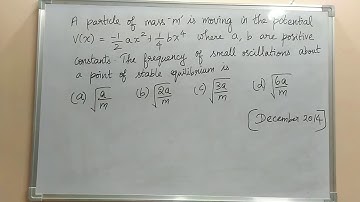 A particle of mass 'm' is moving in the potential
V(x) = -1/2 ax² + 1/4 bx⁴ where a, b are positive
constants. The frequency of small oscillations about
a point of stable equilibrium is
(a) √(a/m) (b) √(2a/m) (c) √(3a/m) (d) √(6a/m)
[December 2014]